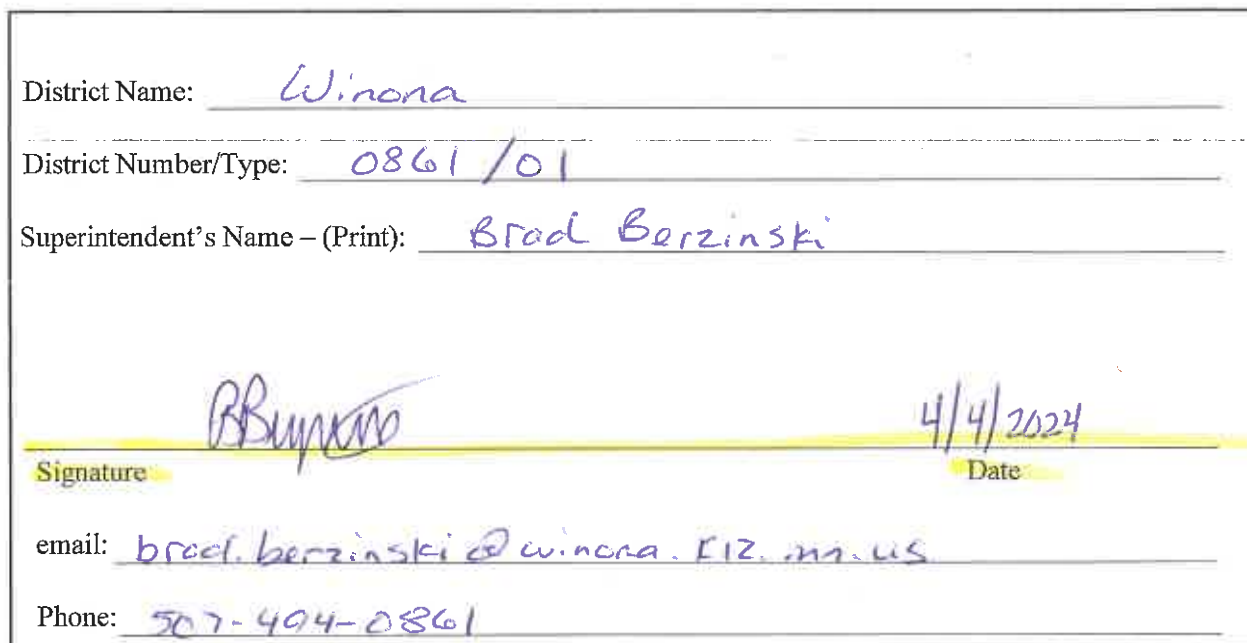 District Name: Winona
District Number/Type: 0861/01
Superintendent's Name – (Print): Brad Berzinski
4/4/2024
Signature Date
email: brad.berzinski@winona.k12.mn.us
Phone: 507-494-0861